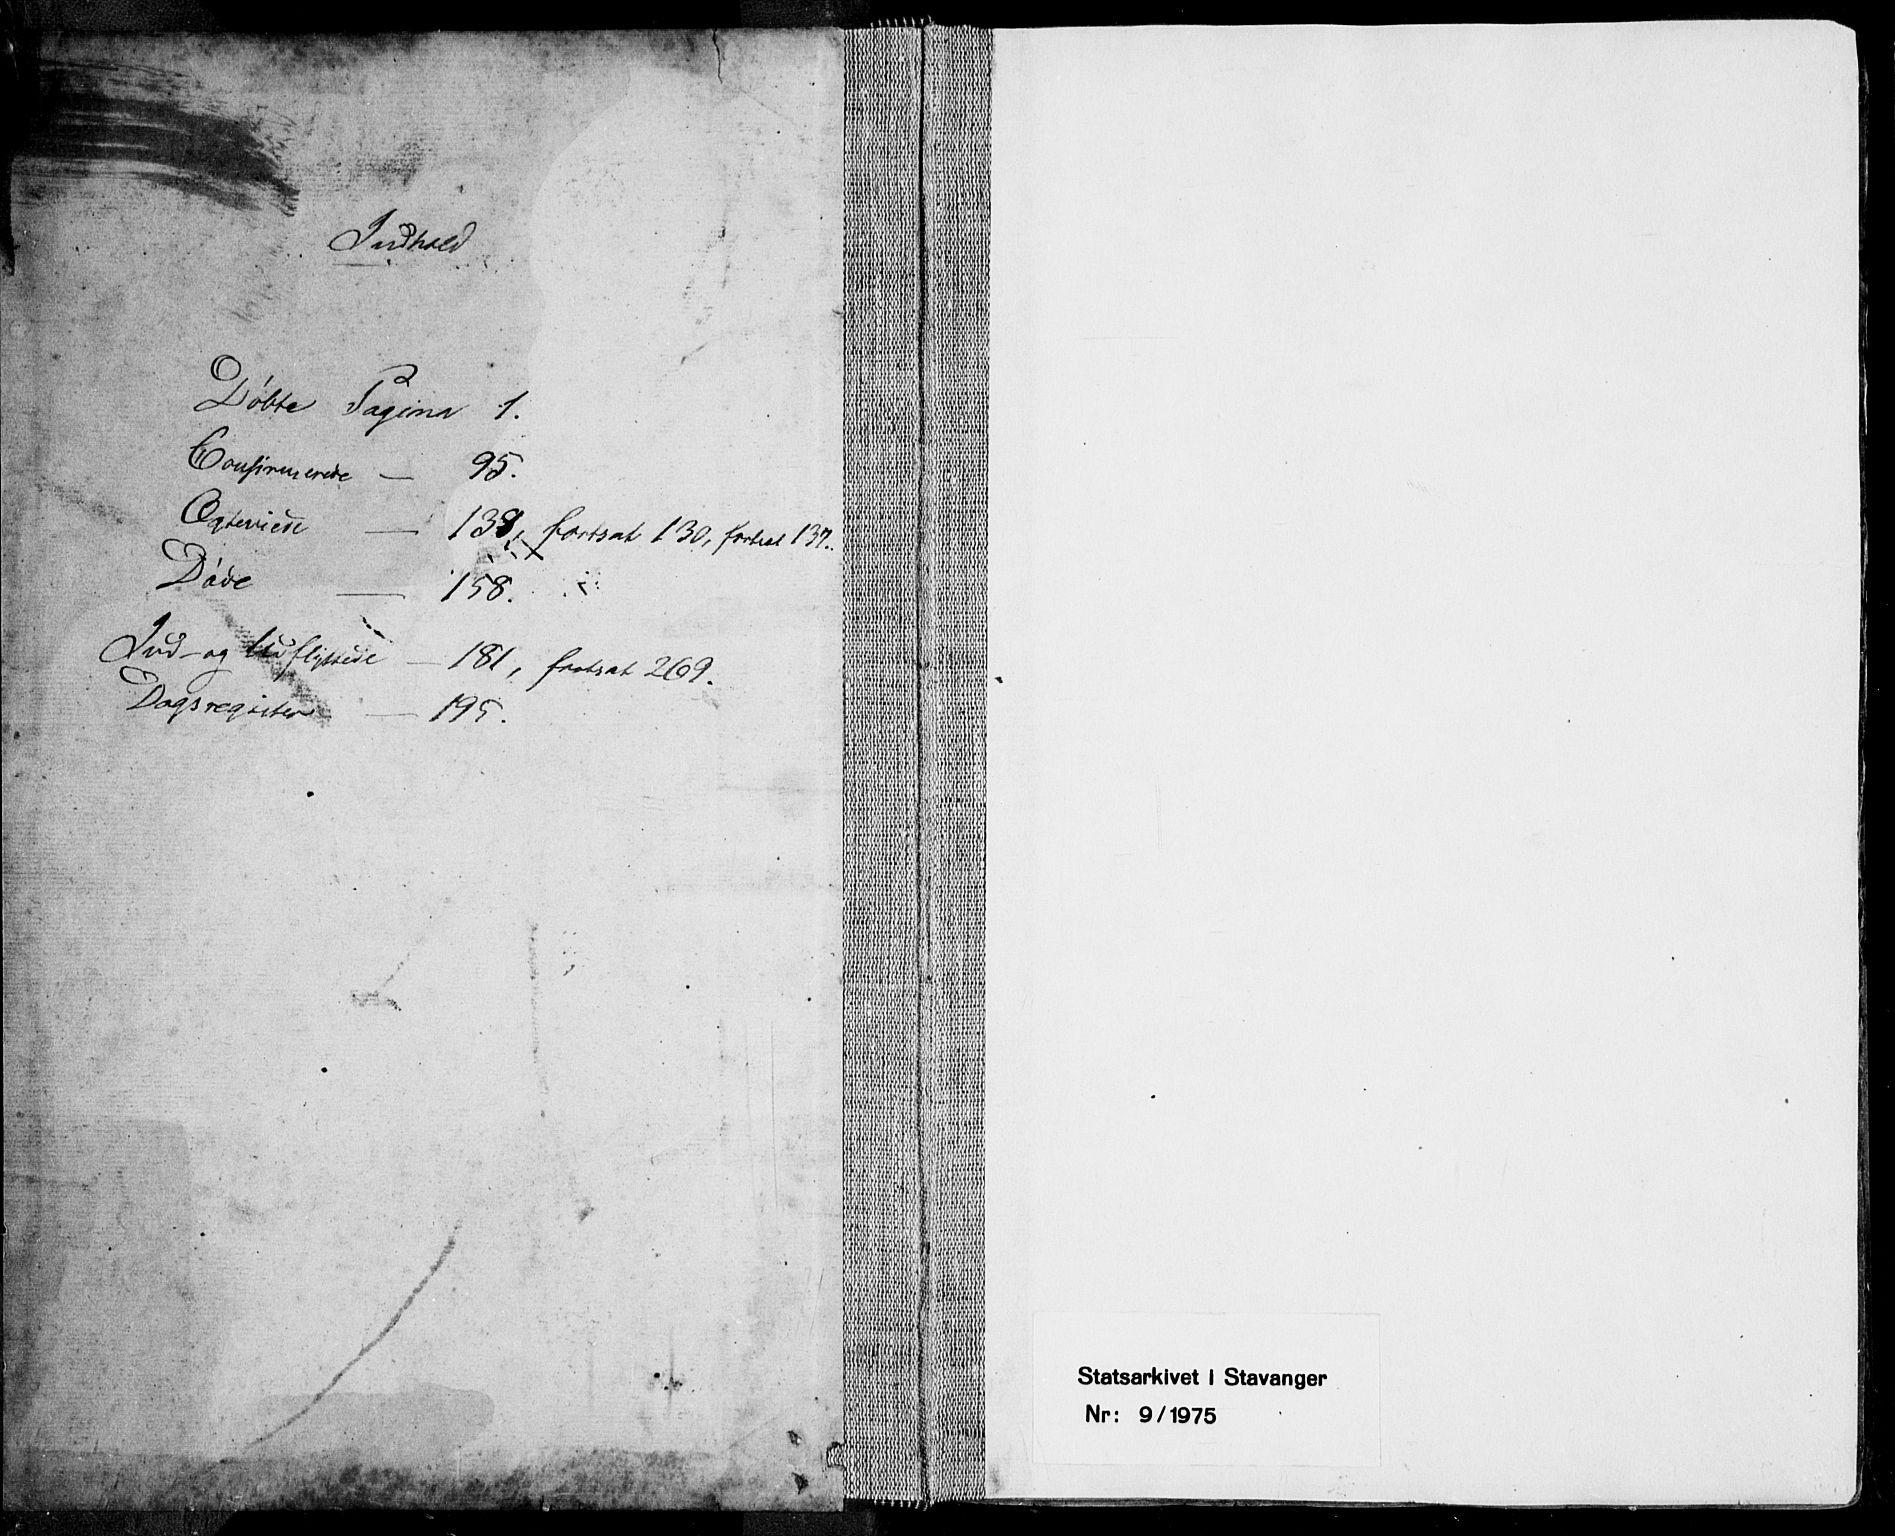 Indhold
Døbte Pagina 1.
Confirmerede — 95.
Egteviede — 138, fortsat 130, fortsat 137.
Døde — 158.
Ind- og Udflyttede — 181, fortsat 269.
Dagsregister — 195.
Statsarkivet i Stavanger
Nr: 9/1975